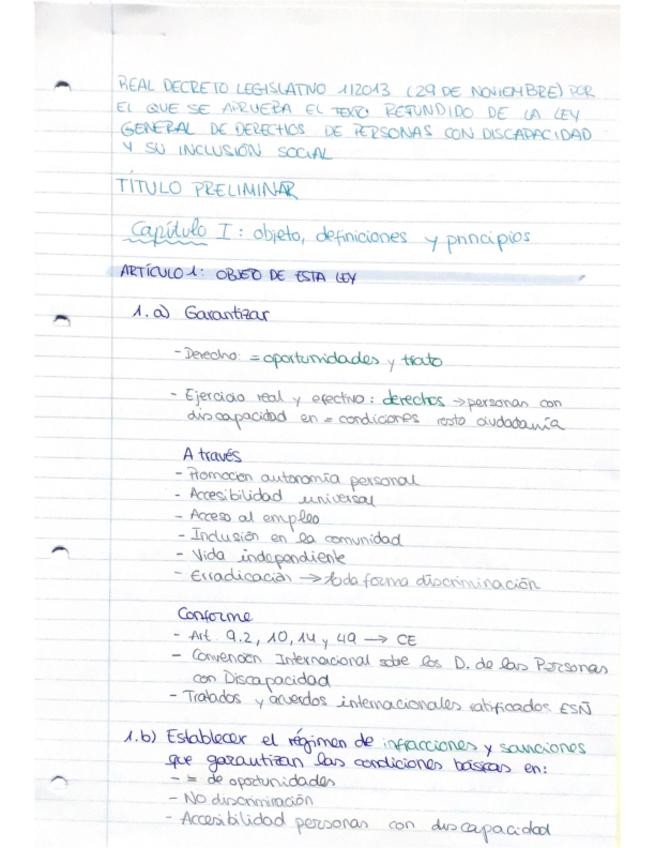 REAL DECRETO LEGISLATIVO 1/2013 (29 DE NOVIEMBRE) POR
EL QUE SE APRUEBA EL TEXTO REFUNDIDO DE LA LEY
GENERAL DE DERECHOS DE PERSONAS CON DISCAPACIDAD
Y SU INCLUSIÓN SOCIAL
TÍTULO PRELIMINAR
Capítulo I: objeto, definiciones y principios
ARTÍCULO 1: OBJETO DE ESTA LEY
1.a) Garantizar
- Derecho: = oportunidades y trato
- Ejercicio real y efectivo: derechos → personas con
discapacidad en = condiciones resto ciudadanía
A través
- Promoción autonomía personal
- Accesibilidad universal
- Acceso al empleo
- Inclusión en la comunidad
- Vida independiente
- Erradicación → toda forma discriminación
Conforme
- Art. 9.2, 10, 14 y 49 → CE
- Convención Internacional sobre los D. de las Personas
con Discapacidad
- Tratados y acuerdos internacionales ratificados ESÑ
1.b) Establecer el régimen de infracciones y sanciones
que garantizan las condiciones básicas en:
- = de oportunidades
- No discriminación
- Accesibilidad personas con discapacidad